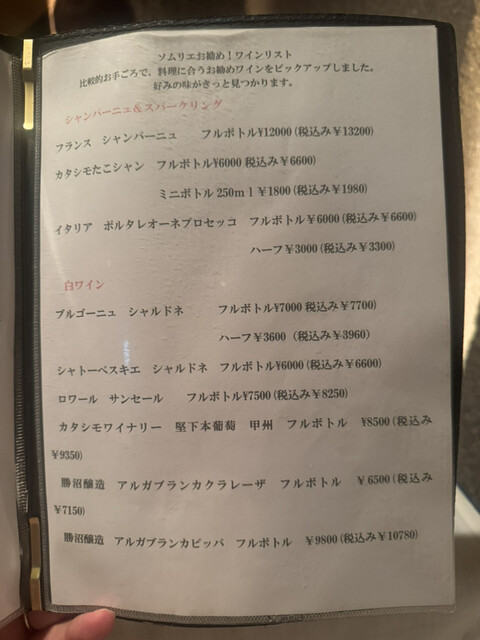 ソムリエお勧め！ワインリスト
比較的お手ごろで、料理に合うお勧めワインをピックアップしました。
好みの味がきっと見つかります。
シャンパーニュ＆スパークリング
フランス　シャンパーニュ　　フルボトル¥12000(税込み￥13200)
カタシモたこシャン　フルボトル¥6000 税込み￥6600)
ミニボトル 250ｍｌ￥1800(税込み￥1980)
イタリア　ポルタレオーネプロセッコ　フルボトル￥6000(税込み￥6600)
ハーフ￥3000(税込み￥3300)
白ワイン
ブルゴーニュ　シャルドネ　　　フルボトル¥7000 税込み￥7700)
ハーフ￥3600（税込み￥3960)
シャトーペスキエ　シャルドネ　フルボトル¥6000(税込み￥6600)
ロワール　サンセール　　フルボトル¥7500(税込み￥8250)
カタシモワイナリー　堅下本葡萄　甲州　フルボトル　¥8500(税込み
¥9350)
勝沼醸造　アルガブランカクラレーザ　フルボトル　￥6500(税込み
¥7150)
勝沼醸造　アルガブランカピッパ　フルボトル　￥9800(税込み¥10780)